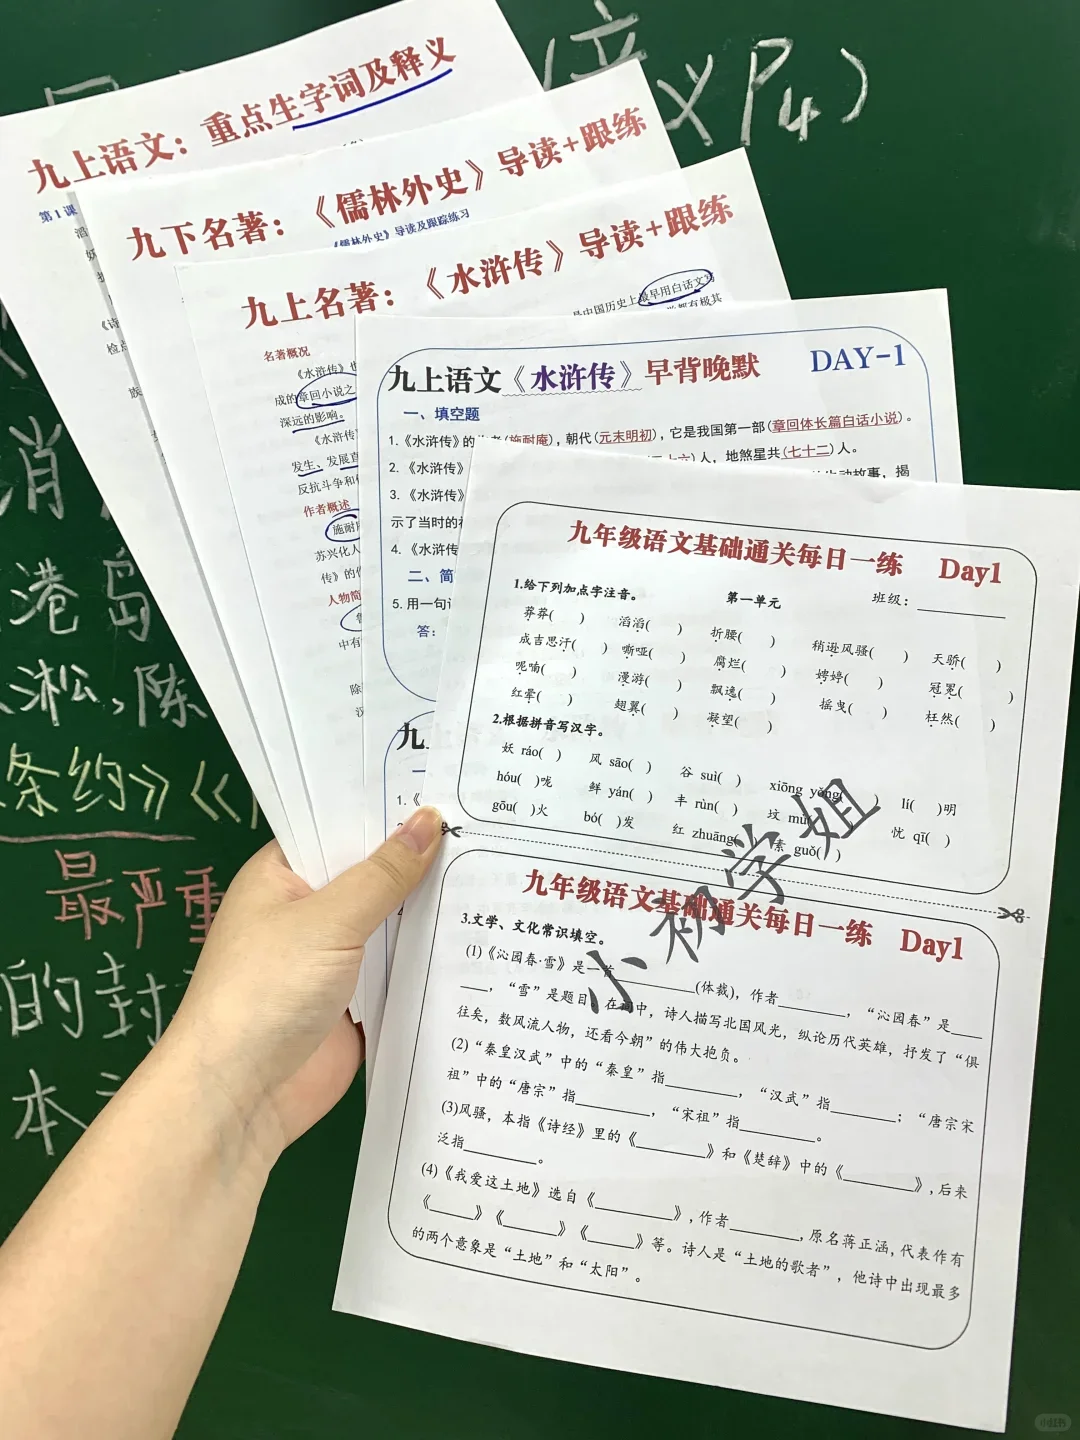 (倍
义P4)
消
港岛
淞,陈
条约》《
最严重
的封
本
九上语文：重点生字词及释义
第1课
九下名著：《儒林外史》导读+跟练
《儒林外史》导读及跟踪练习
九上名著：《水浒传》导读+跟练
是中国历史上最早用白话文写
名著概况
《水浒传》也
成的章回小说之
深远的影响。
《水浒传》
发生、发展直
反抗斗争和
作者概述
施耐
苏兴化人
传》的作
人物简
中有
九上语文《水浒传》早背晚默 DAY-1
一、填空题
1.《水浒传》的作者(施耐庵)，朝代(元末明初)，它是我国第一部(章回体长篇白话小说)。
2.《水浒传》 人，地煞星共(七十二)人。
3.《水浒传》 生动故事，揭
示了当时的社
4.《水浒传
二、简
5.用一句话
答：
九年级语文基础通关每日一练 Day1
1.给下列加点字注音。 第一单元 班级：
莽莽( ) 滔滔( ) 折腰( ) 稍逊风骚( ) 天骄( )
成吉思汗( ) 嘶哑( ) 腐烂( ) 娉婷( ) 冠冕( )
呢喃( ) 漫游( ) 飘逸( ) 摇曳( ) 枉然( )
红晕( ) 翅翼( ) 凝望( )
2.根据拼音写汉字。
妖 ráo( ) 风 sāo( ) 谷 suì( ) xiōng yǒng( ) lí( )明
hóu( )咙 鲜 yán( ) 丰 rùn( ) 坟 mù( ) 忧 qī( )
gōu( )火 bó( )发 红 zhuāng( ) 素 guǒ( )
小初学姐
九年级语文基础通关每日一练 Day1
3.文学、文化常识填空。
(1)《沁园春·雪》是一首________(体裁)，作者________，“沁园春”是____
____，“雪”是题目。在词中，诗人描写北国风光，纵论历代英雄，抒发了“俱
往矣，数风流人物，还看今朝”的伟大抱负。
(2)“秦皇汉武”中的“秦皇”指________，“汉武”指________；“唐宗宋
祖”中的“唐宗”指________，“宋祖”指________。
(3)风骚，本指《诗经》里的《________》和《楚辞》中的《________》,后来
泛指________。
(4)《我爱这土地》选自《________》,作者________,原名蒋正涵,代表作有
《_____》《_____》《_____》等。诗人是“土地的歌者”，他诗中出现最多
的两个意象是“土地”和“太阳”。
小红书